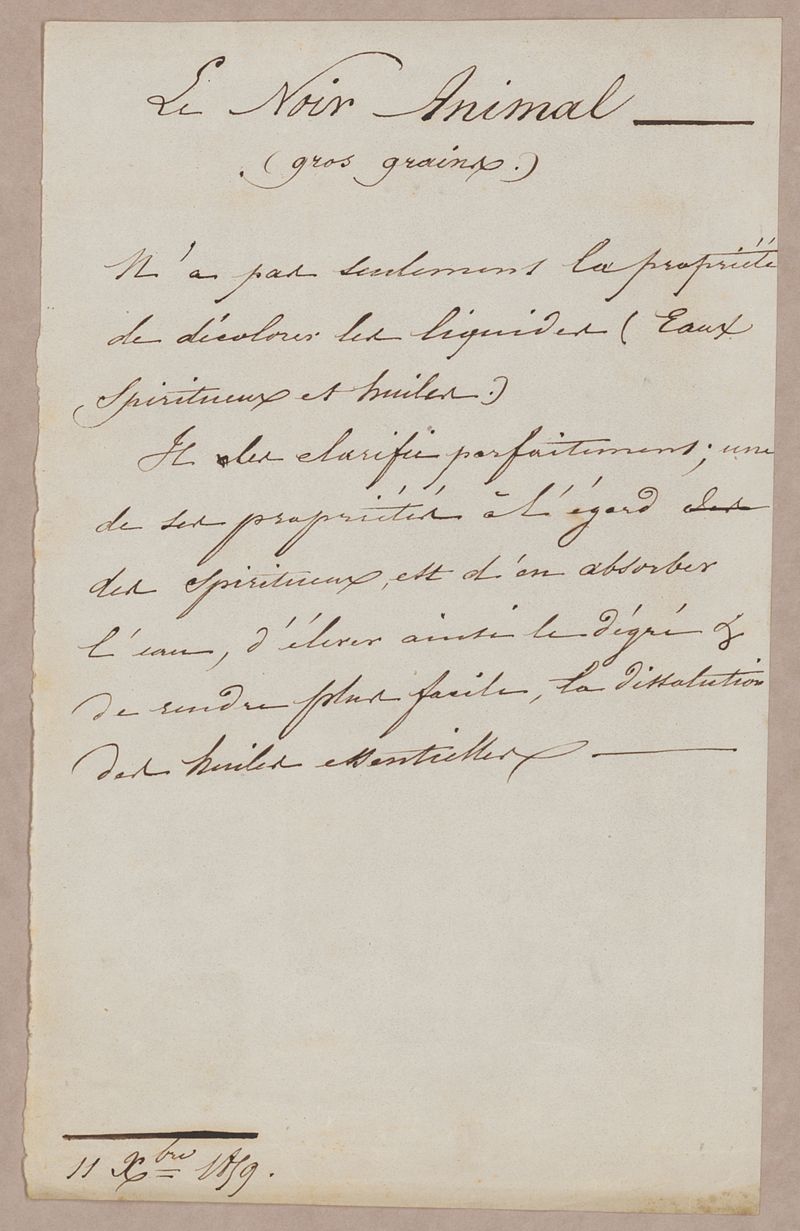 Le Noir Animal
(gros grains.)
N'a pas seulement la propriété
de décolorer les liquides (Eaux
Spiritueux et huiles.)
Il les clarifie parfaitement; une
de ses propriétés à l'égard des
des spiritueux, est d'en absorber
l'eau, d'élever ainsi le dégré &
de rendre plus facile, la dissolution
des huiles essentielles
11 Xbre 1859.